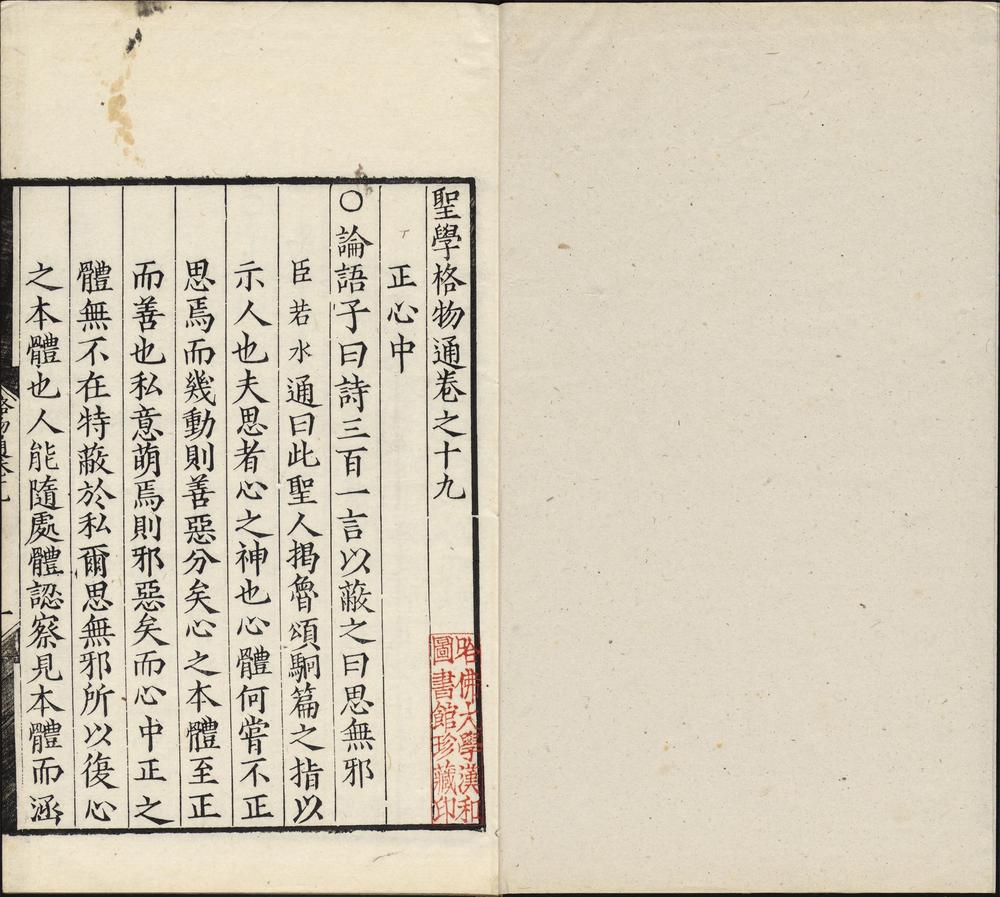 聖學格物通卷之十九
正心中
○論語子曰詩三百一言以蔽之曰思無邪
臣若水通曰此聖人揭魯頌駉篇之指以
示人也夫思者心之神也心體何嘗不正
思焉而幾動則善惡分矣心之本體至正
而善也私意萌焉則邪惡矣而心中正之
體無不在特蔽於私爾思無邪所以復心
之本體也人能隨處體認察見本體而涵
哈佛大學漢和
圖書館珍藏印